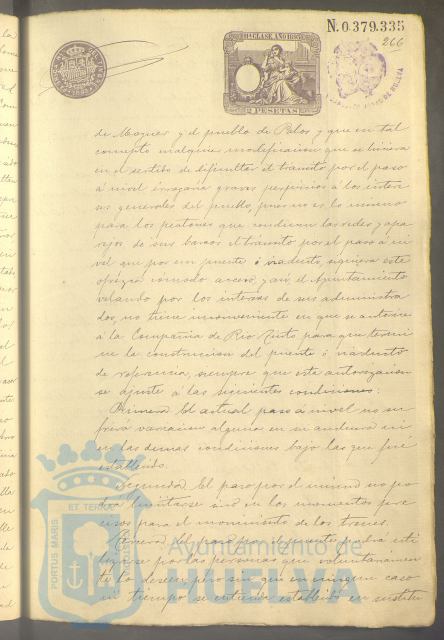 N. 0.379.335
266
11ª CLASE AÑO
2 PESETAS
de Moguer y el pueblo de Palos y que en tal
concepto cualquier modificacion que se hiciera
en el sentido de dificultar el tránsito por el paso
á nivel irrogaria graves perjuicios á los intere
ses generales del pueblo, pues no es lo mismo
para los peatones que conducen las redes y apa
rejos de sus barcos el tránsito por el paso á ni
vel que por un puente ó viaducto, siquiera este
ofrezca cómodo acceso, y asi el Ayuntamiento
velando por los intereses de sus administra
dos, no tiene inconveniente en que se autorice
á la Compañia de Rio Tinto para que termi
ne la construccion del puente ó viaducto
de referencia, siempre que esta autorizacion
se ajuste á las siguientes condiciones:
Primera El actual paso á nivel no su
frirá variacion alguna en su anchura ni
en las demas condiciones bajo las que fué
establecido.
Segunda El paso por el mismo no po
drá limitarse sinó en los momentos pre
cisos para el movimiento de los trenes.
Tercera El paso por el puente podrá uti
lizarse por las personas que voluntariamen
te lo deseen, pero sin que en ningun caso
ni tiempo se entienda establecido en sustitu
PORTUS MARIS
ET TERRAE
Ayuntamiento de
HUELVA